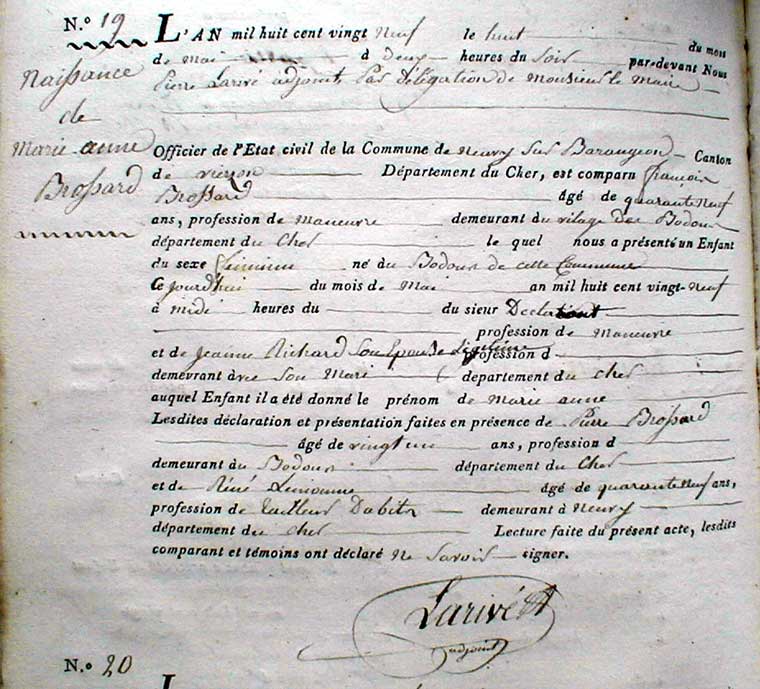 N.° 19
Naissance
de
Marie anne
Brossard
L'AN mil huit cent vingt neuf le huit du mois
de mai à deux heures du soir par-devant Nous
Pierre Larivé adjoint, Par Délégation de monsieur le maire
Officier de l'Etat civil de la Commune de neuvy sur Barangeon Canton
de vierzon Département du Cher, est comparu françois
Brossard âgé de quarante neuf
ans, profession de maneuvre demeurant du vilage des Bodoux
département du Cher le quel nous a présenté un Enfant
du sexe féminin né du Bodoux de cette Commune
Ce jourd'hui du mois de Mai an mil huit cent vingt-neuf
à midi heures du du sieur
profession de maneuvre
et de Jeanne Richard Son Epouse Légitime profession d
demeurant avec Son Mari département du cher
auquel Enfant il a été donné le prénom de marie anne
Lesdites déclaration et présentation faites en présence de Pierre Brossard
âgé de vingt ans, profession d
demeurant du Bodoux département du Cher
et de René âgé de quarante neuf ans,
profession de tailleur Dabits demeurant à neuvy
département du cher Lecture faite du présent acte, lesdits
comparant et témoins ont déclaré ne Savoir signer.
Larivé
adjoint
N.° 20
L